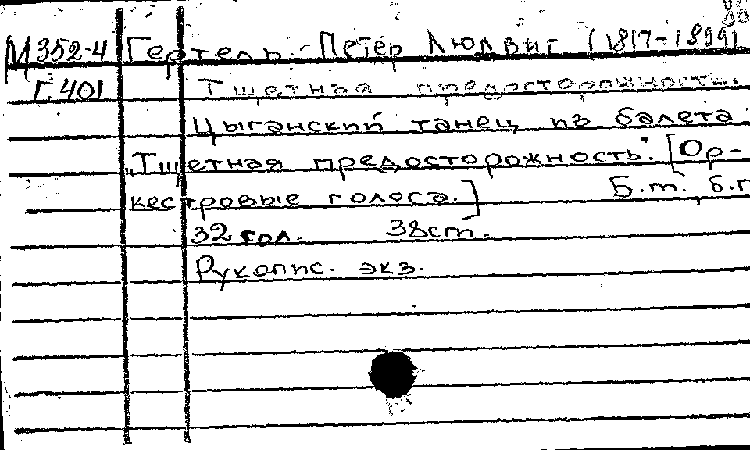 М 352-4 Гертель. Петер Людвиг (1817-1899)
Г. 401 Тщетная предосторожность.
Цыганский танец из балета
"Тщетная предосторожность". [Ор-
кестровые голоса.] Б.m., б.г
32 гол. 38 ст.
Рукопис. экз.